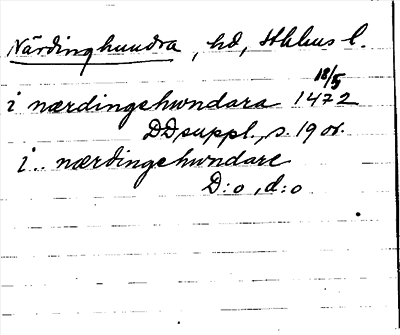 Närdinghundra, hd, Sthlms l.
18/5
i nærdingehwndara 1472
DD suppl., s. 19 or.
i.. nærdingehwndare
D:o, d:o